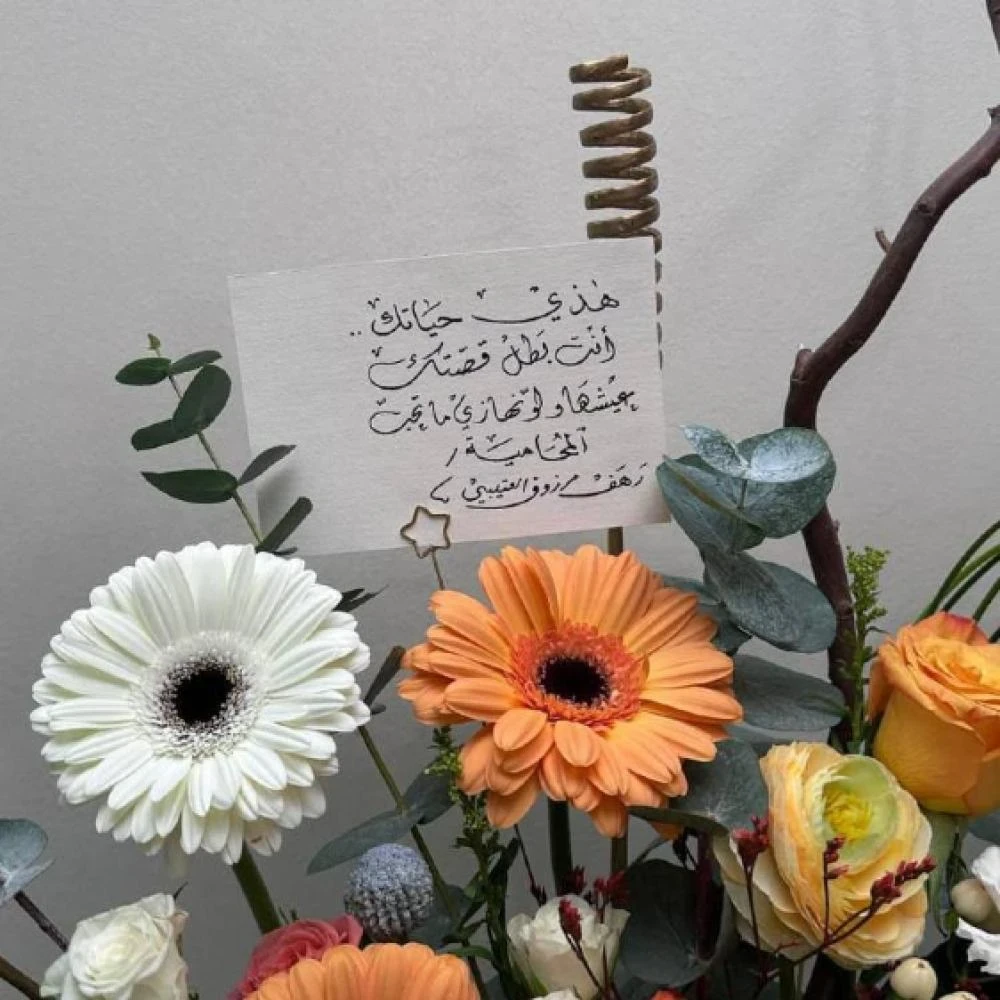 هٰذي حيَاتك ..
أنْت بَطلْ قصّتك
عِيْشهَا ولوّنها زيْ ما تِحبْ
المُحَاميَة /
رَهَفْ مرزوق العتيبيْ